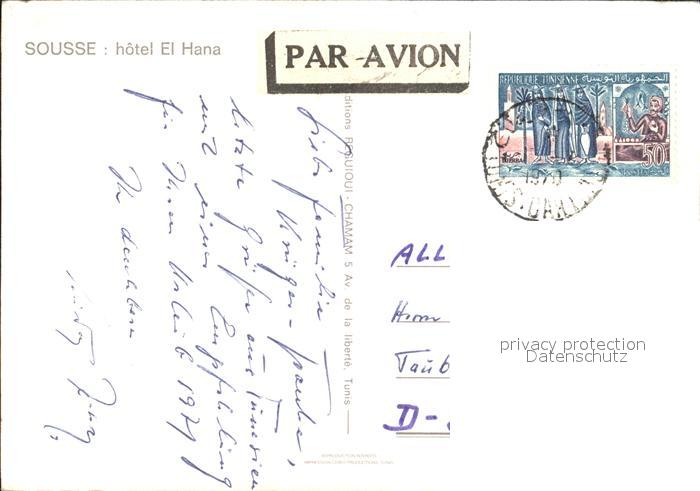 SOUSSE : hôtel El Hana
PAR-AVION
REPUBLIQUE TUNISIENNE الجمهورية التونسية
50
1970
Editions REGUIOUI - CHAMAM 5 Av. de la liberté, Tunis
Liebe Familie
Krüger-Traube,
letzte Grüße aus Tunesien
und eine Empfehlung
für Ihren Urlaub 1971
Ihr dankbarer
ALL
Herrn
Taub
D-
privacy protection
Datenschutz